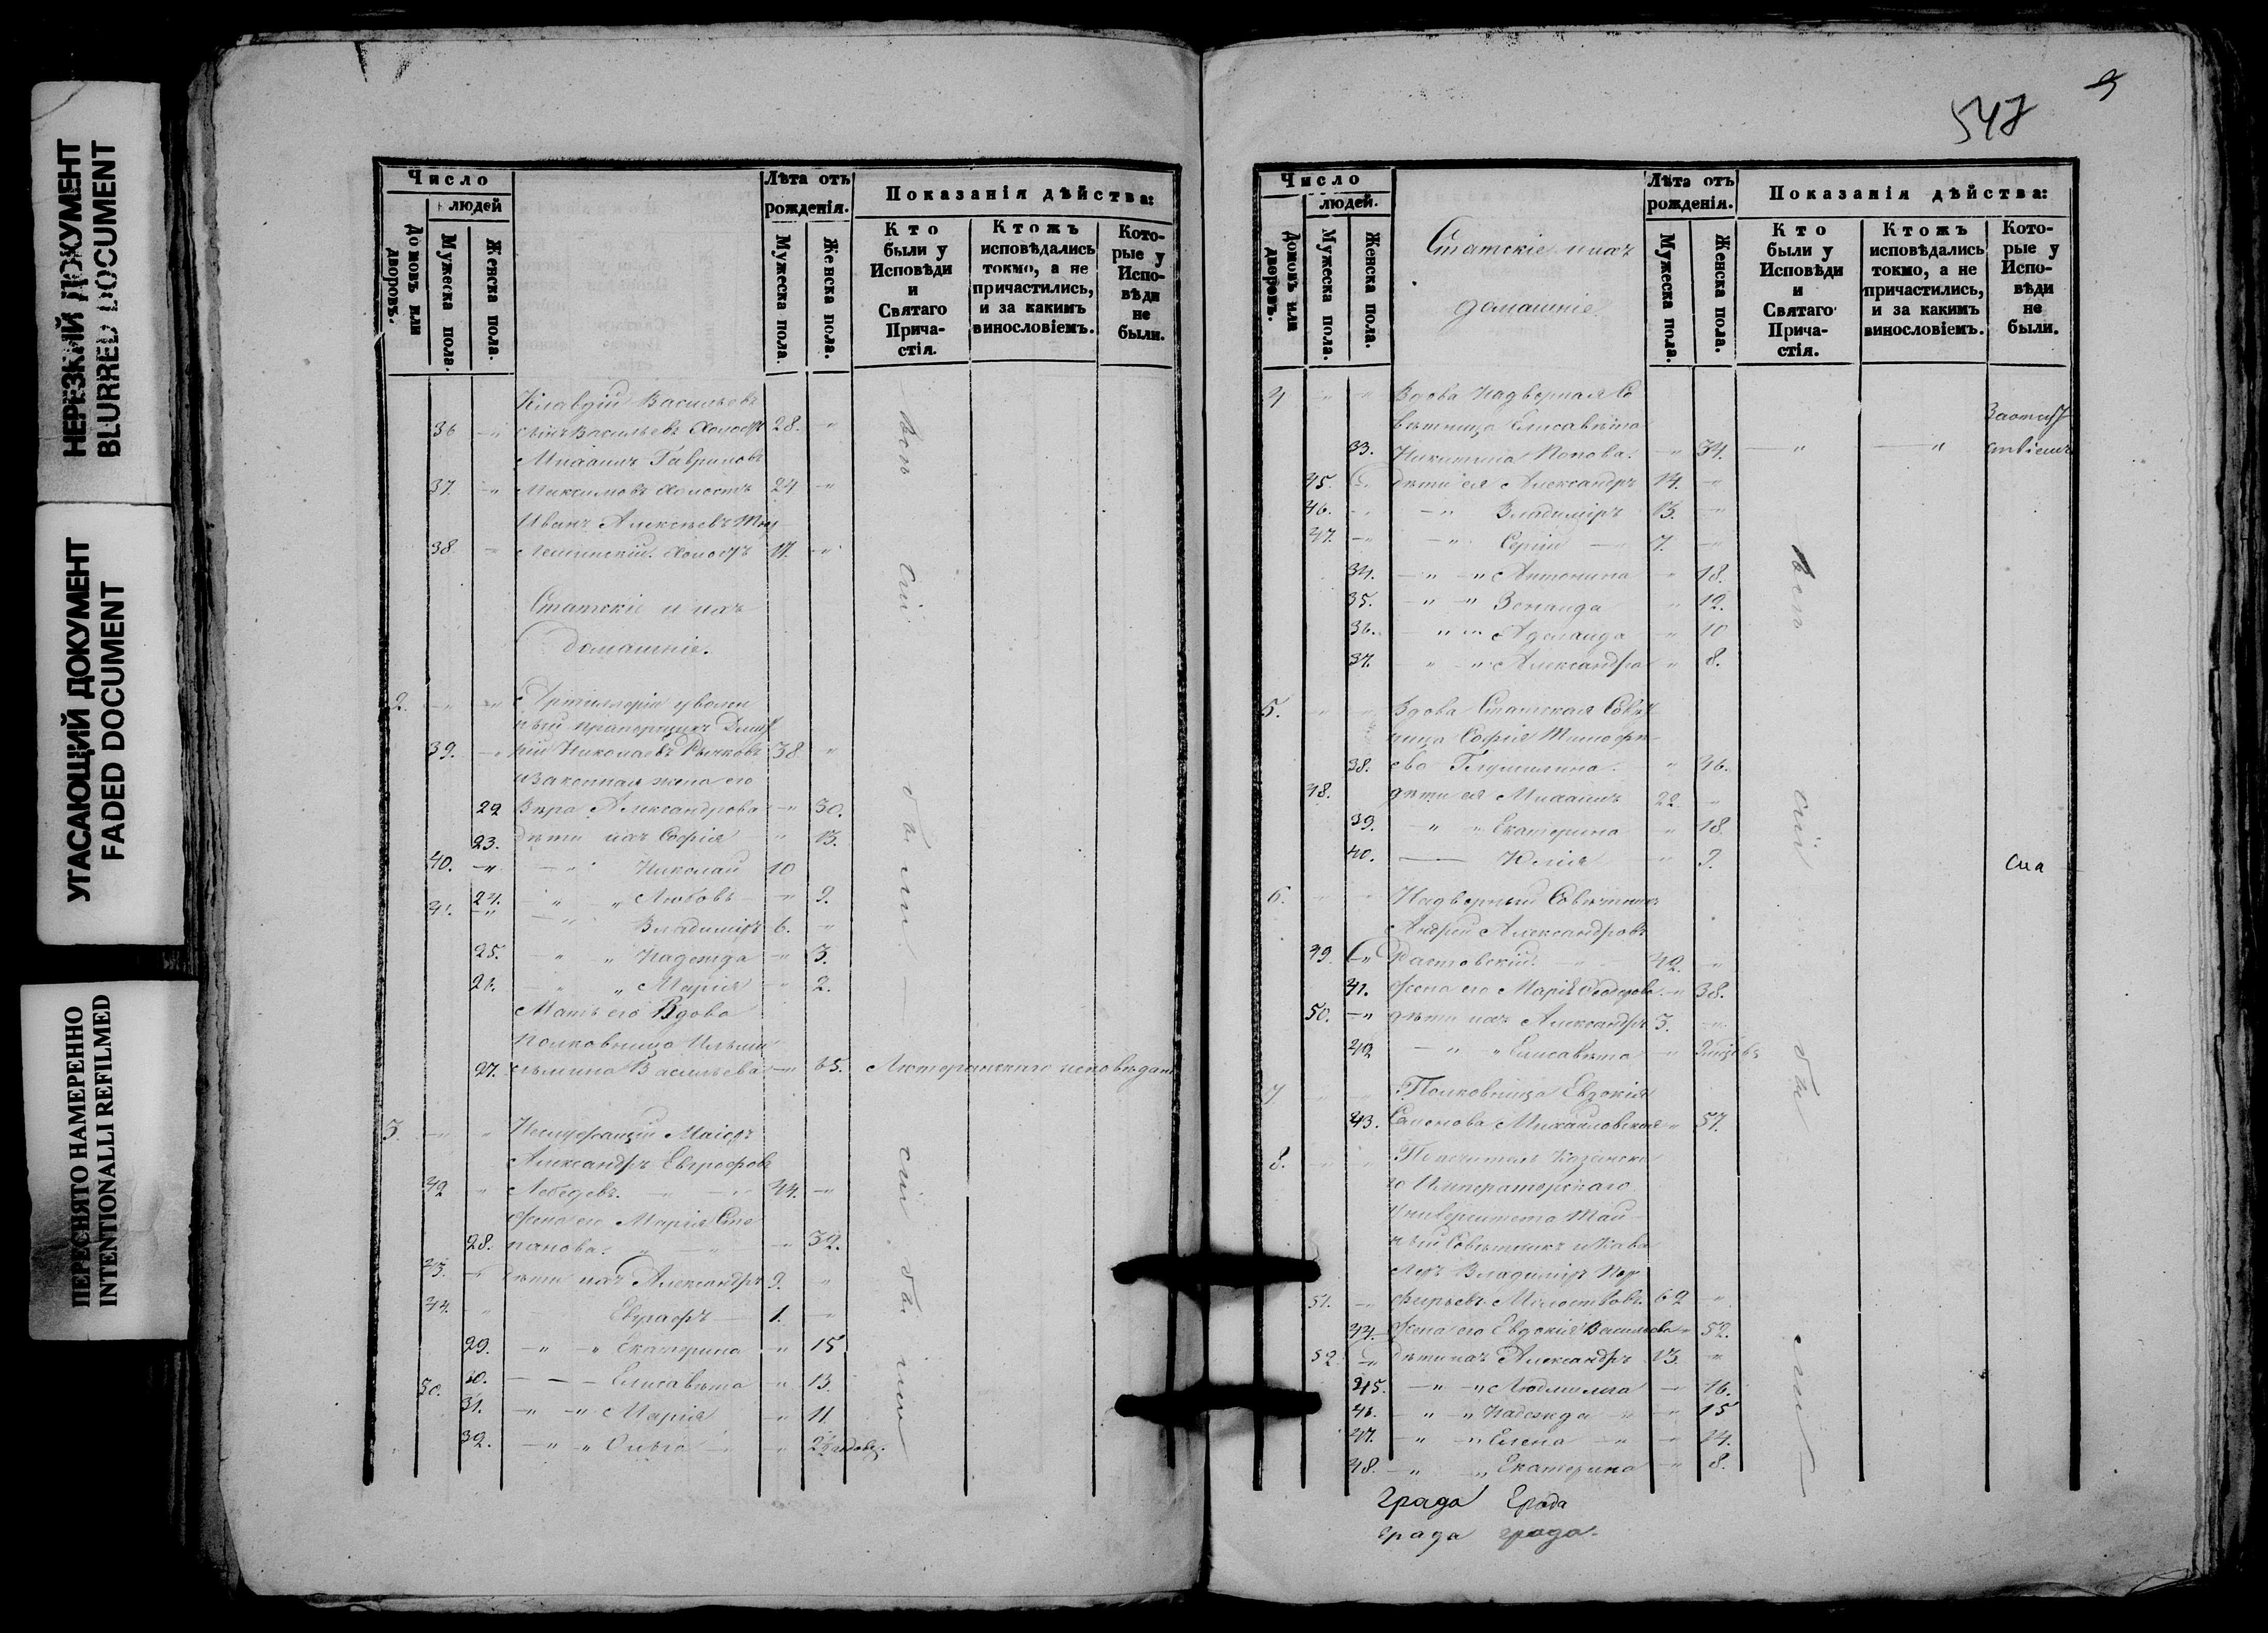 НЕРЕЗКИЙ ДОКУМЕНТ
BLURRED DOCUMENT
УГАСАЮЩИЙ ДОКУМЕНТ
FADED DOCUMENT
ПЕРЕСНЯТО НАМЕРЕННО
INTENTIONALLI REFILMED
Число
людей
Домовъ или дворовъ.
Мужеска пола.
Женска пола.
Лѣта отъ рожденія.
Мужеска пола.
Женска пола.
Показанія дѣйства:
Кто были у Исповѣди и Святаго Причастія.
Ктожъ исповѣдались токмо, а не причастились, и за какимъ винословіемъ.
Которые у Исповѣди не были.
Клавдій Васильевъ
36 сынъ Васильевъ Холостъ 28.
Михаилъ Гавриловъ
37. Максимовъ Холостъ 24
Иванъ Алексѣевъ
38 Холостъ 17.
Статскіе и ихъ
домашніе.
2. Артиллеріи уволен
ный прапорщикъ Дмит
39. рій Николаевъ Рычковъ 38
и Законная жена его
22 Вѣра Александрова 30.
23. дѣти ихъ Софія 13.
40. Николай 10
24. Любовь 9.
41. Владиміръ 6.
25. Надежда 3.
26. Марія 2.
Мать его Вдова
Полковница Вильгель
27. Васильева 65. Лютеранскаго исповѣдан
3. Маіоръ
Александръ Евграфовъ
42 Лебедевъ. 44.
Жена его Марія Сте
28. панова. 32.
43. дѣти ихъ Александръ 9.
44. Евграфъ 1.
29. Екатерина 15
30. Елисавета 13
50.
31. Марія 11
32. Ольга 2½ годовъ.
всѣ сіи были
сіи были
547
9
Число
людей.
Домовъ или дворовъ.
Мужеска пола.
Женска пола.
Статскіе и ихъ
домашніе.
Лѣта отъ рожденія.
Мужеска пола.
Женска пола.
Показанія дѣйства:
Кто были у Исповѣди и Святаго Причастія.
Ктожъ исповѣдались токмо, а не причастились, и за какимъ винословіемъ.
Которые у Исповѣди не были.
4 Вдова Надворная Со
вѣтница Елисавета
За отсут
33. Никитина Попова. 34. ствіемъ
45. дѣти ея Александръ 14.
46. Владиміръ 13.
47. Сергій 7.
34. Антонина 18.
35. Зенаида 12.
36. Аделаида 10
37. Александра 8.
5. Вдова Статская Совѣт
ница Софія Тимофѣ
38. ева 46.
48. дѣти ея Михаилъ 22.
39. Екатерина 18
40. Юлія 9.
сиа
6. Надворный Совѣтникъ
Андрей Александровъ
49. 42.
41. Жена его Марія Ѳеодорова 38.
50. дѣти ихъ Александръ 3.
42 Елисавета
7 Полковница Евдокія
43. Семенова Михайловская 57.
8. Попечитель Казанска
го Императорскаго
Университета Тай
ный Совѣтникъ и Кава
леръ Владиміръ Пор
51. фирьевъ Молоствовъ. 62
44. Жена его Евдокія Васильева 52.
52. дѣти ихъ Александръ 13.
45. Людмила 16.
46. Надежда 15
47. Елена 14.
48. Екатерина 8.
всѣ сіи были
Града Града
града града.